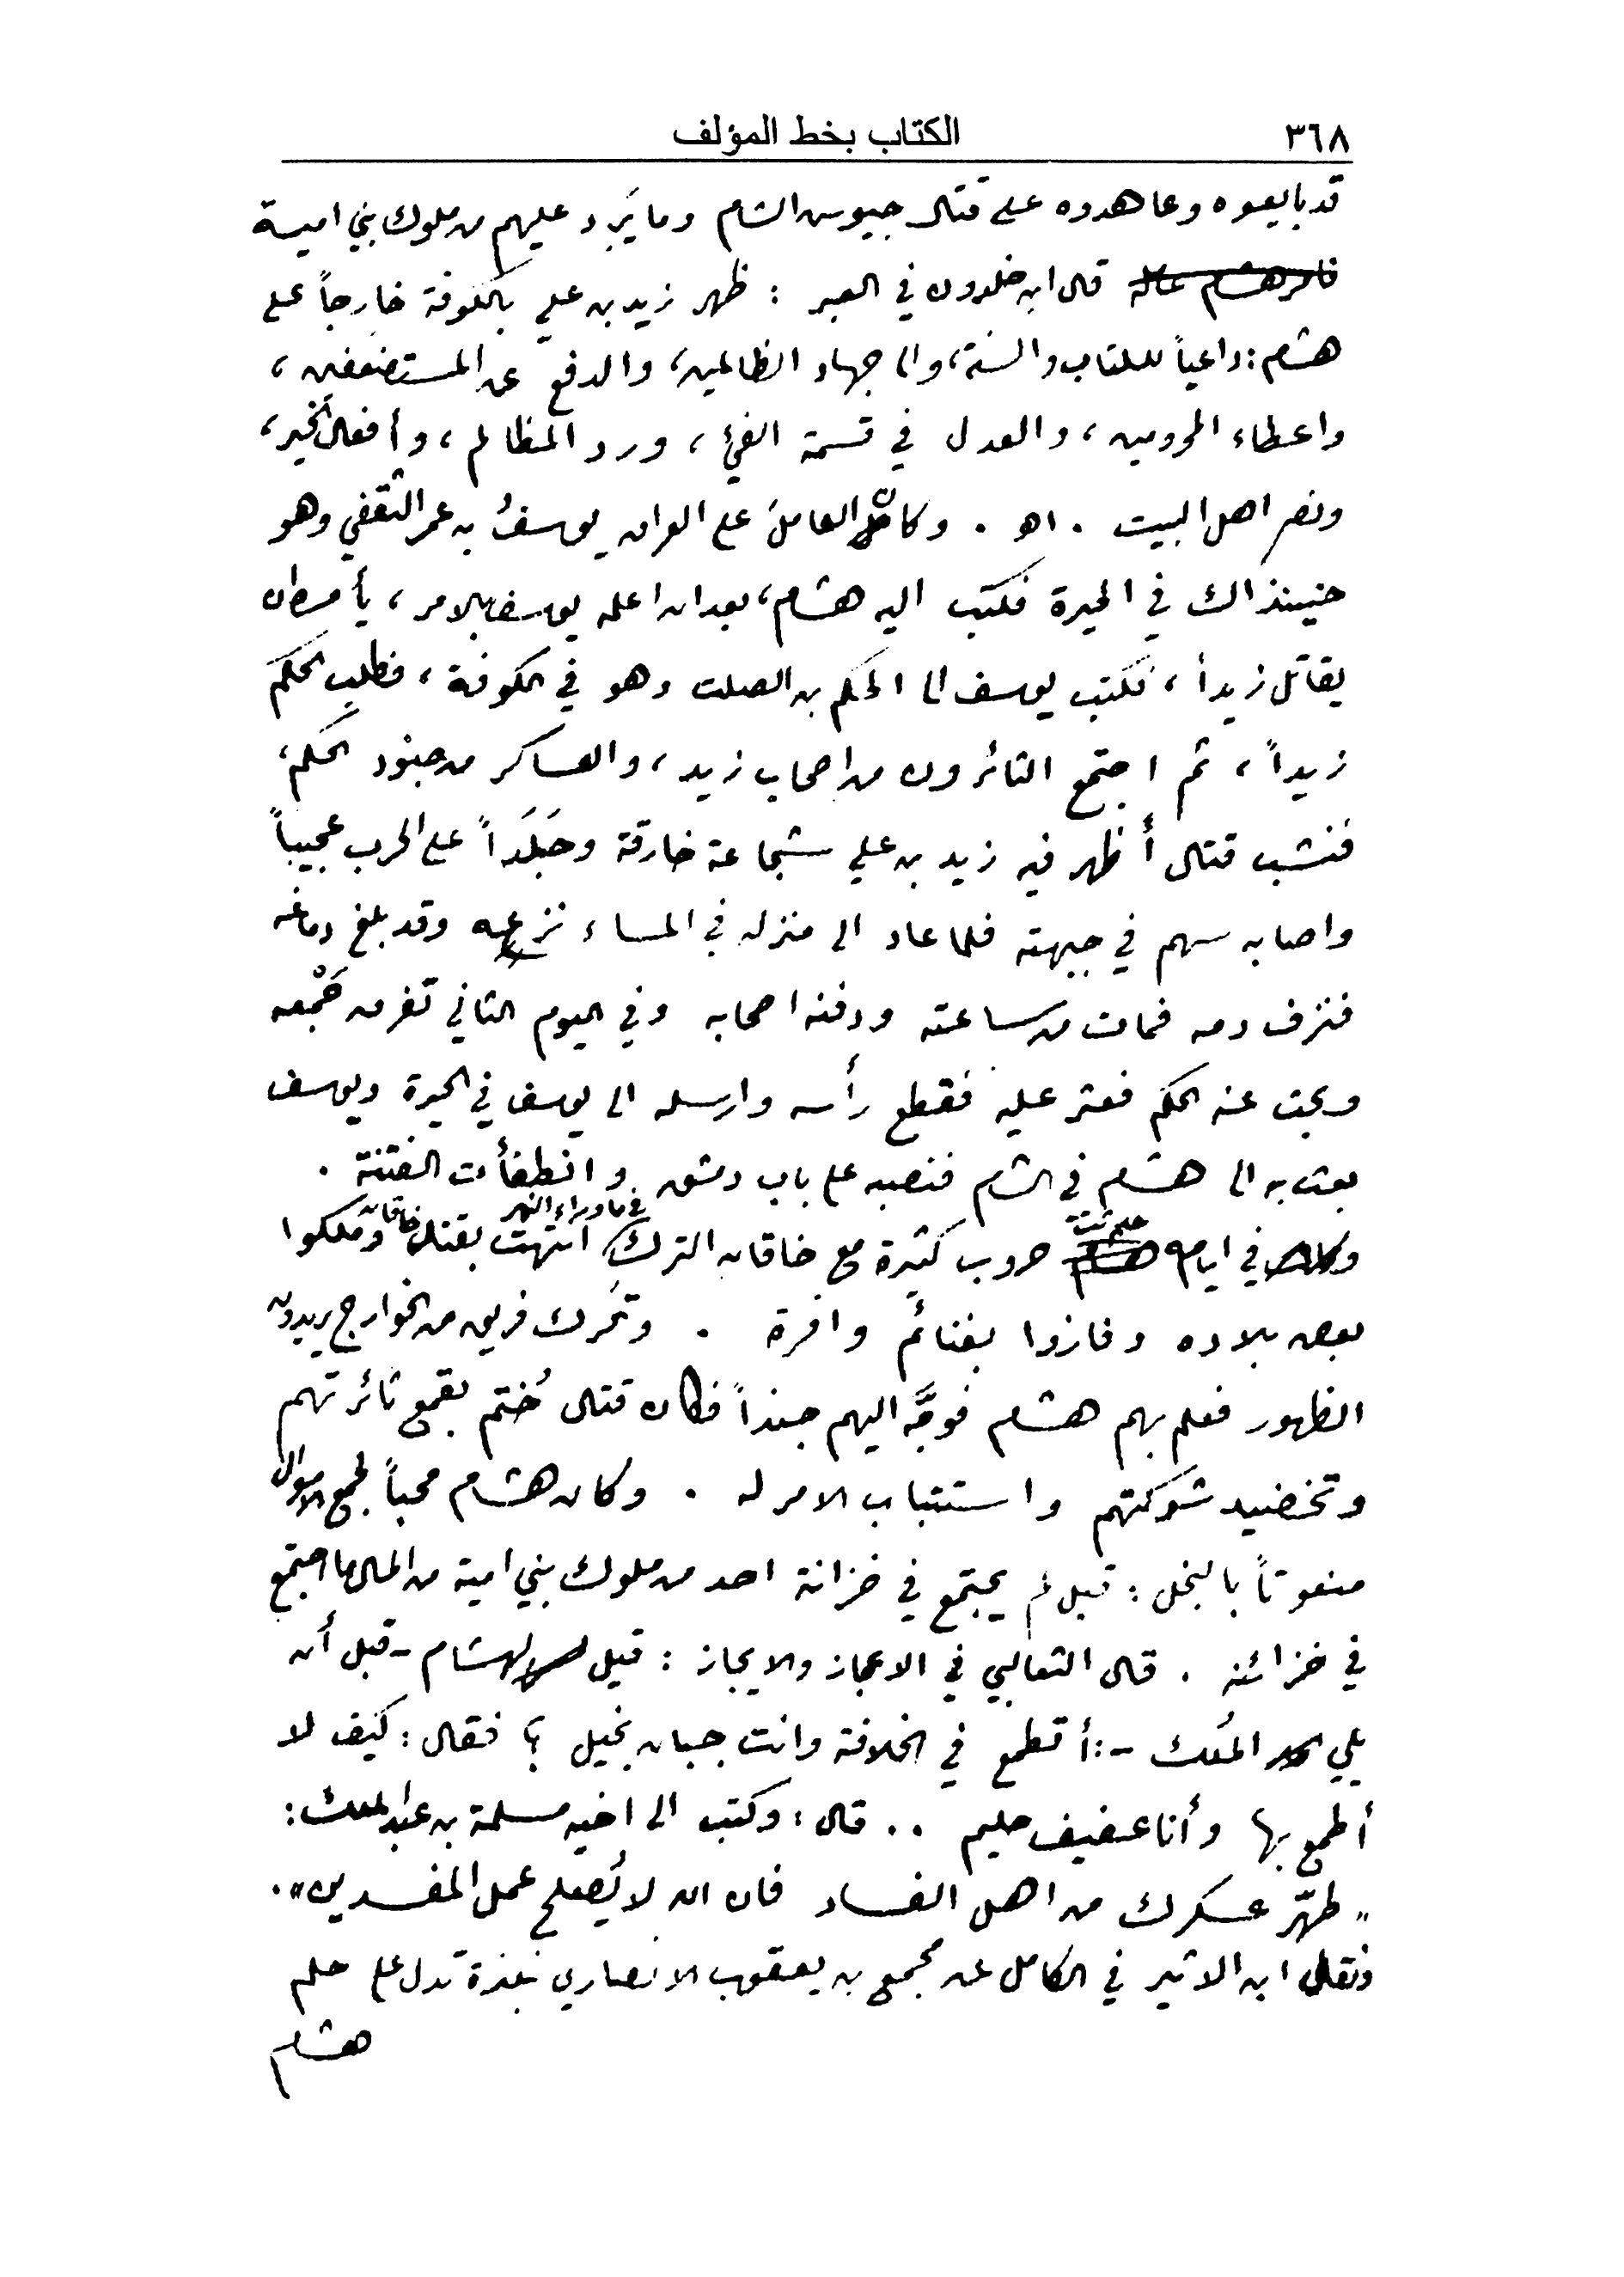 ٣٦٨
الكتاب بخط المؤلف
قد بايعوه وعاهدوه على قتال جيوس الشام وما يَرِد عليهم من ملوك بني امية
فامر هشام عامله قال ابن خلدون في العبر : ظهر زيد بن علي بالكوفة خارجاً على
هشام : داعياً للكتاب والسنة ، والى جهاد الظالمين ، والدفع عن المستضعفين ،
واعطاء المحرومين ، والعدل في قسمة الفيْ ، ورد المظالم ، وأفعال الخير ،
ونصر اهل البيت . اهـ . وكان العاملَ على العراق يوسفُ بن عمر الثقفي وهو
حينذاك في الحيرة فكتب اليه هشام ، بعد ان اعلمه يوسف بالامر ، يأمره ان
يقاتل زيداً ، فكتب يوسف الى الحكم بن الصلت وهو في الكوفة ، فطلب الحكم
زيداً ، ثم اجتمع الثائرون من اصحاب زيد ، والعساكر من جنود الحكم ،
فنشب قتال أظهر فيه زيد بن علي شجاعة خارقة وجَلَداً على الحرب عجيباً
واصابه سهم في جبهته فلما عاد الى منزله في المساء نزعه وقد بلغ دماغه
فنزف دمه فمات من ساعته ودفنه اصحابه وفي اليوم الثاني تفرق جَمْعه
وبحث عنه الحكم فعثر عليه فقطع رأسه وارسله الى يوسف في الحيرة ويوسف
بعث به الى هشام في الشام فنصبه على باب دمشق وانطفأت الفتنة .
في ما وراء النهر
وفي ايامه حدثت هشام حروب كثيرة مع خاقان الترك انتهت بقتل خاقان وملكوا
بعض بلاده وفازوا بغنائم وافرة . وتحرك فريق من الخوارج يريدون
الظهور فعلم بهم هشام فوجَّه اليهم جنداً فكان قتال خُتم بقمع ثائرتهم
وتخضيد شوكتهم واستتباب الامر له . وكان هشام محباً لجمع الاموال
منعوتاً بالبخل : قيل لم يجتمع في خزانة احد من ملوك بني امية من المال ما اجتمع
في خزائنه . قال الثعالبي في الاعجاز والايجاز : قيل لهشام - قبل أن
يلي المُلك - : أتطمع في الخلافة وانت جبان بخيل ؟ فقال : كيف لا
أطمع بها وأنا عفيف حليم .. قال : وكتب الى اخيه مسلمة بن عبد الملك :
« طهّر عسكرك من اهل الفساد فان الله لا يُصلح عمل المفسدين » .
ونقل ابن الاثير في الكامل عن مجمع بن يعقوب الانصاري نبذة تدل على حلم
هشام